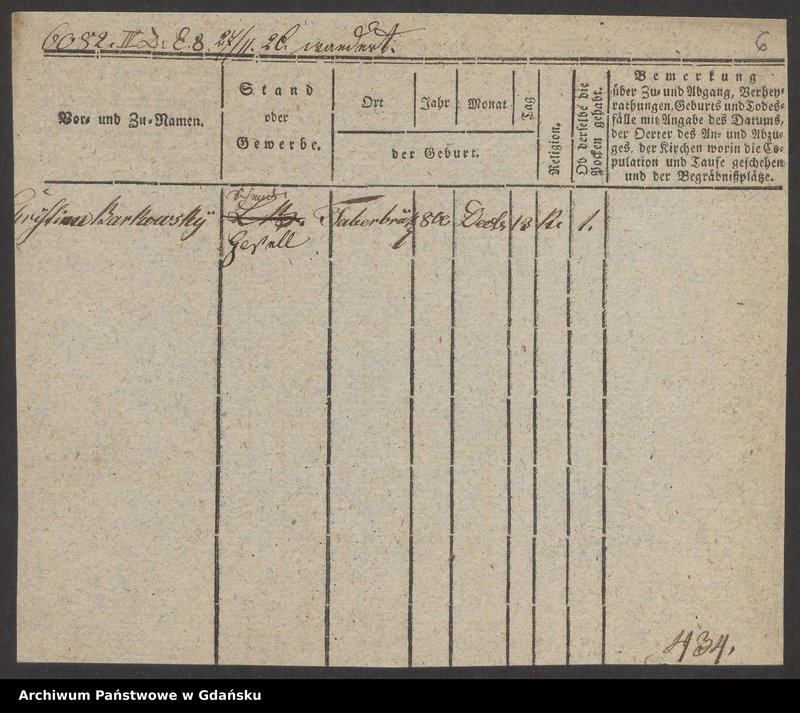 6082. IV D. E. 8. 27/11. 26. wandert.
6
Vor- und Zu-Namen.
Stand
oder
Gewerbe.
Ort
Jahr
Monat
Tag
der Geburt.
Religion.
Ob derselbe die
Pocken gehabt.
Bemerkung
über Zu- und Abgang, Verhey-
rathungen, Geburts und Todes-
fälle mit Angabe des Datums,
der Oerter des An- und Abzu-
ges, der Kirchen worin die Co-
pulation und Taufe geschehen
und der Begräbnißplätze.
Barkowsky
Gesell
Decbr
1.
434.
Archiwum Państwowe w Gdańsku